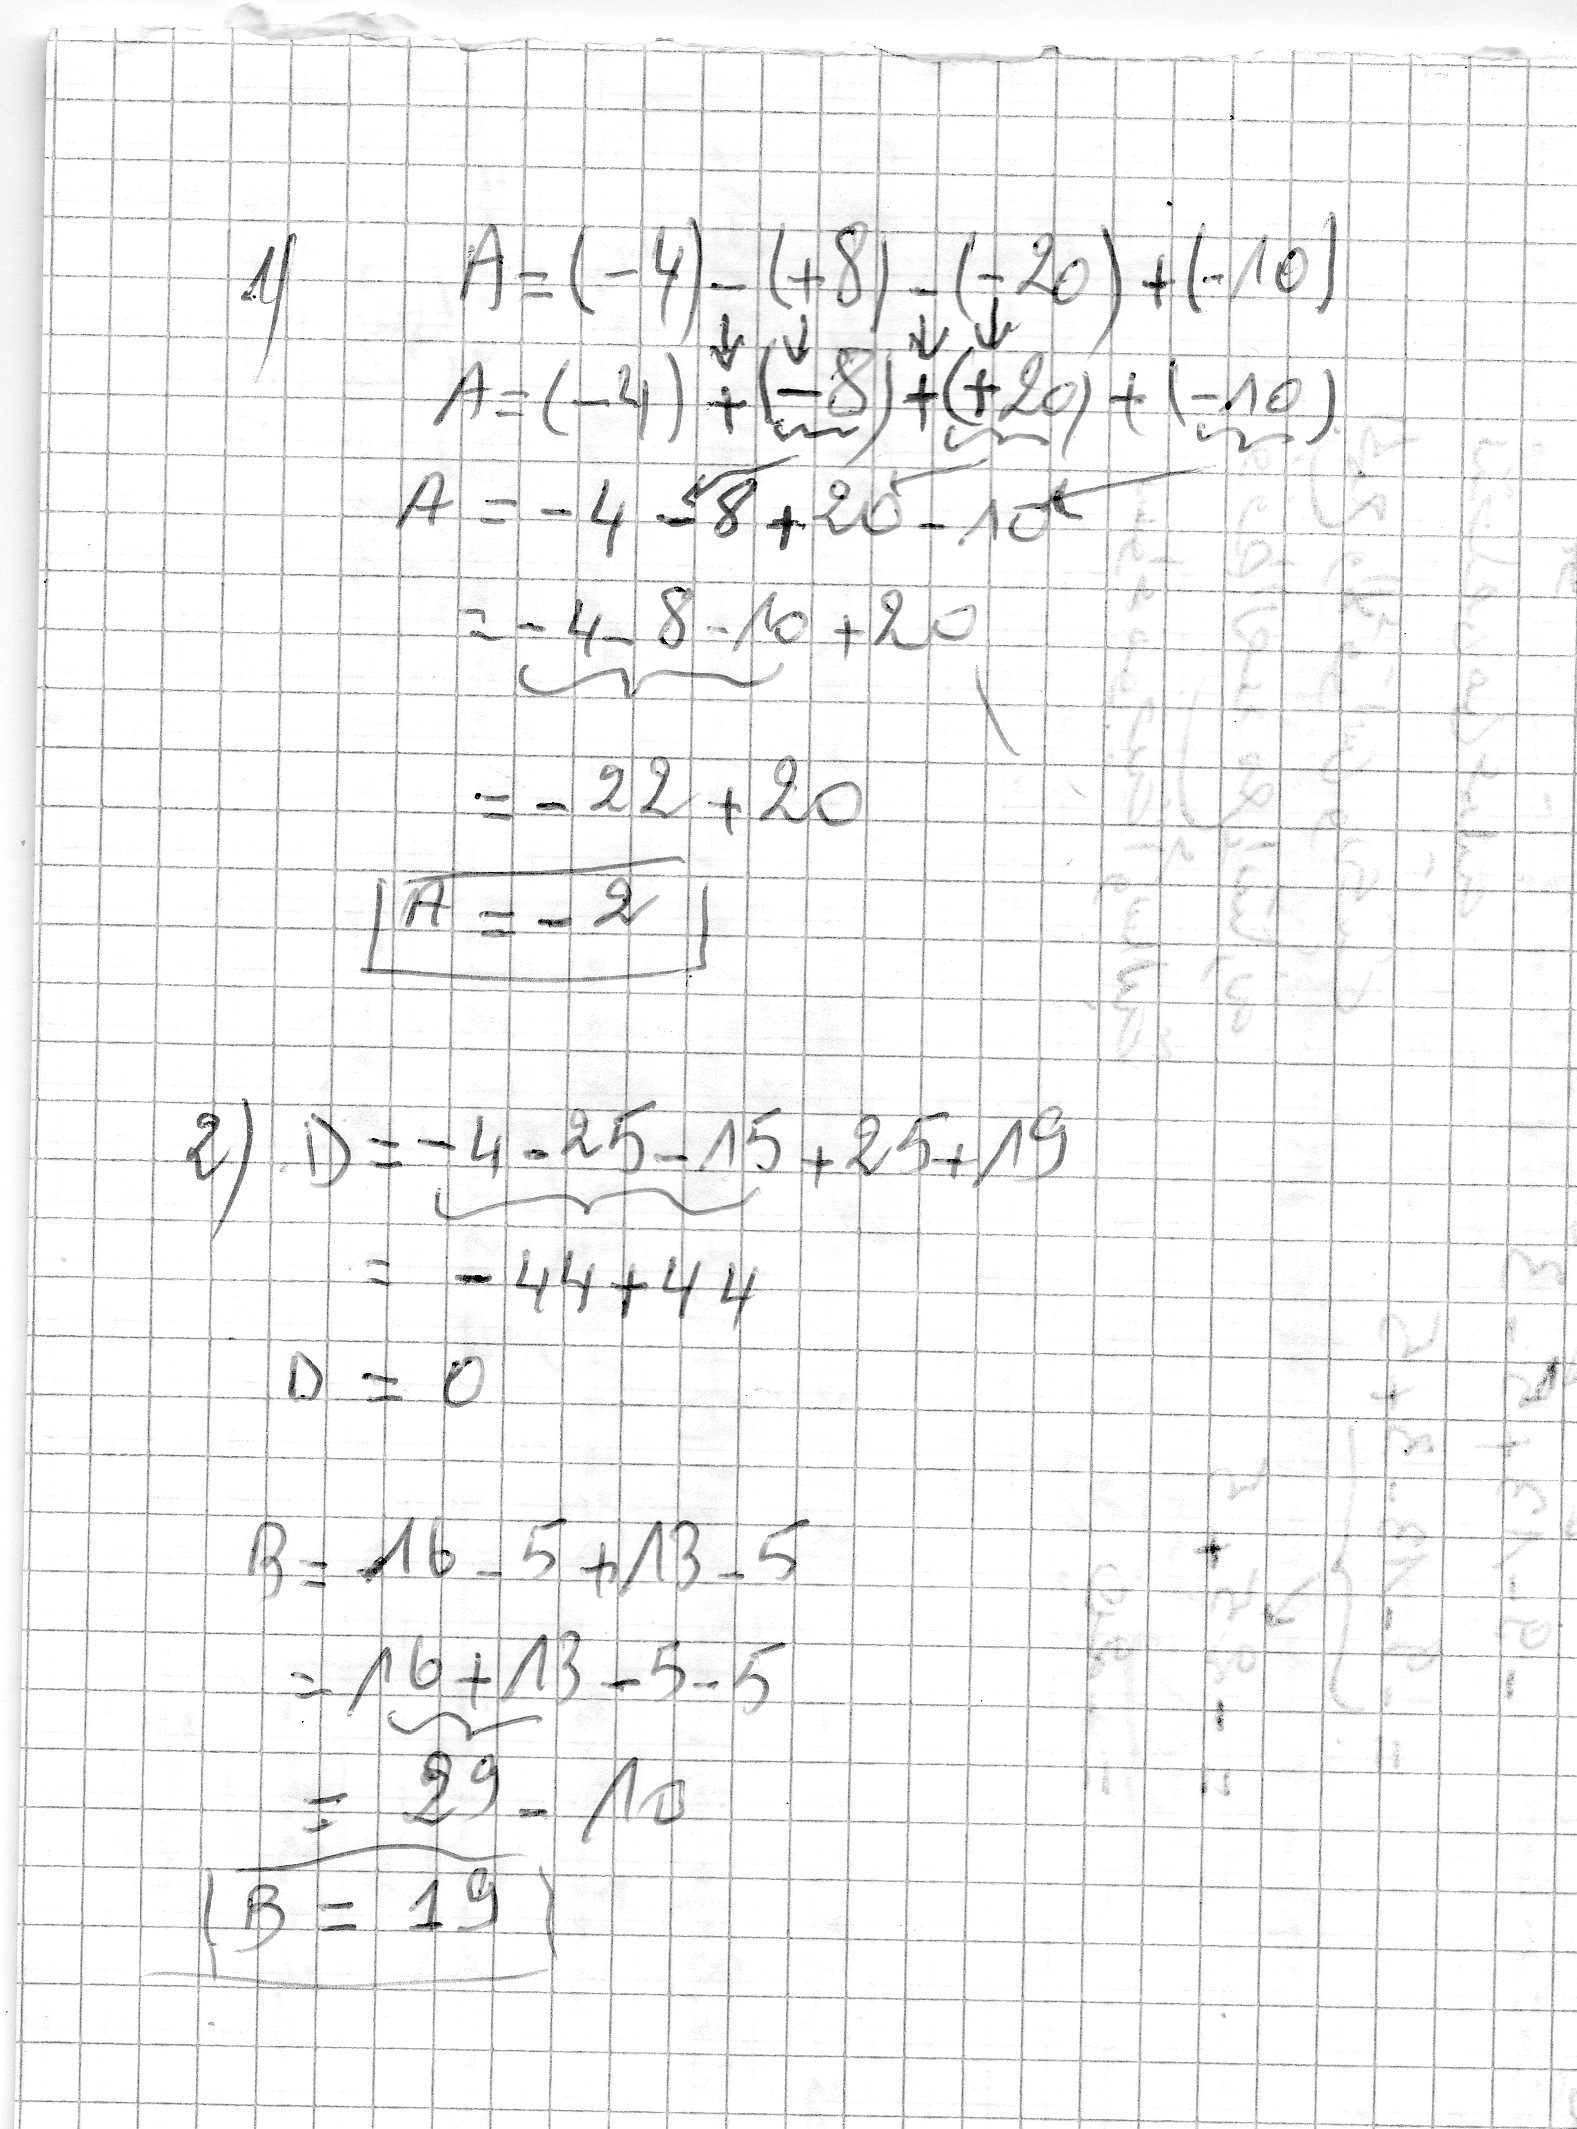 1) A = (-4) - (+8) - (-20) + (-10)
A = (-4) + (-8) + (+20) + (-10)
A = -4 - 8 + 20 - 10
= -4 - 8 - 10 + 20
= -22 + 20
A = -2
2) D = -4 - 25 - 15 + 25 + 19
= -44 + 44
D = 0
B = 16 - 5 + 13 - 5
= 16 + 13 - 5 - 5
= 29 - 10
B = 19